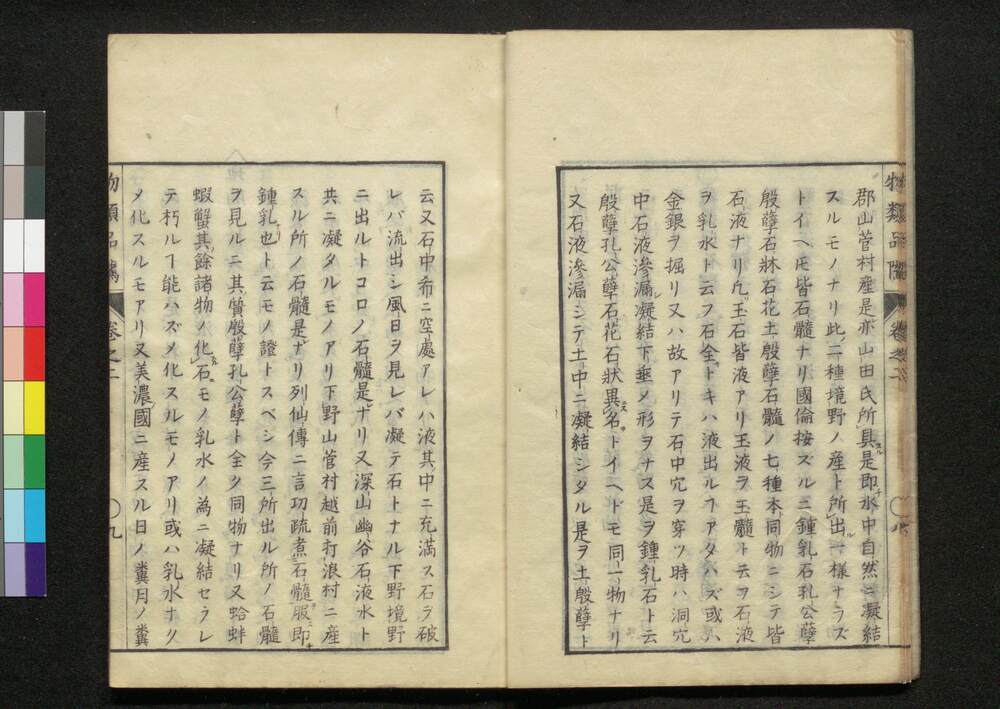 物類品隲 巻之二 八
郡山菅村産是亦山田氏所具是即水中自然ニ凝結
スルモノナリ此二種境野ノ産ト所出一様ナラズ
トイヘ𪜈皆石髓ナリ國倫按ズルニ鍾乳石孔公孽
殷孽石牀石花土殷孽石髓ノ七種本同物ニシテ皆
石液ナリ凡玉石皆液アリ玉液ヲ玉髓ト云フ石液
ヲ乳水ト云フ石全トキハ液出ルヿアタハズ或ハ
金銀ヲ掘リ又ハ故アリテ石中穴ヲ穿ツ時ハ洞穴
中石液滲漏凝結下垂ノ形ヲナス是ヲ鍾乳石ト云
殷孽孔公孽石花石狀異名トイヘドモ同一物ナリ
又石液滲漏シテ土中ニ凝結シタル是ヲ土殷孽ト
云又石中希ニ空處アレハ液其中ニ充満ス石ヲ破
レバ流出シ風日ヲ見レバ凝テ石トナル下野境野
ニ出ルトコロノ石髓是ナリ又深山幽谷石液水ト
共ニ凝タルモノアリ下野山菅村越前打浪村ニ産
スル所ノ石髓是ナリ列仙傳ニ言功疏煮石髓服即
鍾乳也ト云モノ證トスベシ今三所出ル所ノ石髓
ヲ見ルニ其質殷孽孔公孽ト全ク同物ナリ又蛤蚌
蝦蟹其餘諸物ノ化石モノ乳水ノ為ニ凝結セラレ
テ朽ルヿ能ハズメ化スルモノアリ或ハ乳水ナク
メ化スルモアリ又美濃國ニ産スル日ノ糞月ノ糞
物類品隲 巻之二 九